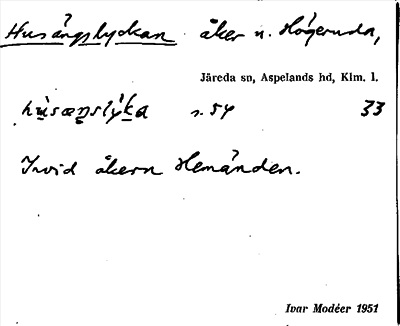 Husängslyckan åker n. Högeruda,
Järeda sn, Aspelands hd, Klm. l.
hùsæŋslýka s. 54 33
Invid åkern Hemänden.
Ivar Modéer 1951